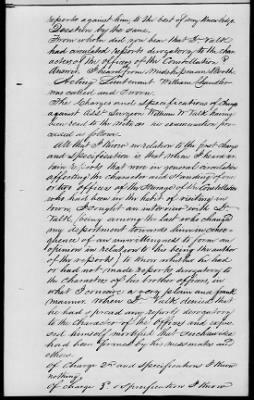 reports against him to the best of my knowledge.
Question by the same.
From whom did you hear that Dr Valk
had circulated reports derogatory to the cha-
racters of the officers of the Constellation?
Answer. I heard from Midshipman
Acting Lieutenant William Chandler
was called and sworn.
The Charges and specifications of charge
against Asst. Surgeon William W. Valk having
been read to the witness his examination pro-
ceeded as follows.
All that I know in relation to the first charge
and specification is that when I heard cer-
tain reports that were in general circulation
affecting the character and standing of one
or two officers of the Steerage of the Constellation
who had been in the habit of visiting in
town, I sought an interview with Dr
Valk (being among the last who changed
my deportment towards him in conse-
quence of an unwillingness to form an
opinion in relation to his being the author
of the reports) to know whether he had
or had not made reports derogatory to
the characters of his brother officers, in
what I conceive a very plain and frank
manner when Dr Valk denied that
he had spread any reports derogatory
to the character of the Officers and expres-
sed himself mortified that such an idea
had been formed by his messmates and
others.
Of charge 2nd and specification I know
nothing.
Of charge 3d & specification I know